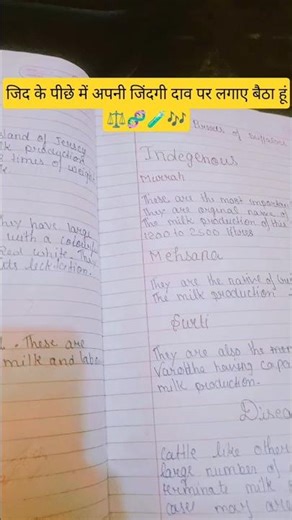 जिद के पीछे में अपनी जिंदगी दाव पर लगाए बैठा हूं
island of Jersey
milk production
times of weight
They have large
with a colourd
Red white. These
lactation.
These are
milk and labo
Breeds of
Indegenous
Murrah
These are the most important
They are orginal native of
The milk production of the
1200 to 2500 litres
Mehsana
They are the native of
The milk production
Surti
They are also the
Varodhe having capa
milk production.
Disea
cattle like other
large number of
terminate milk
case may are